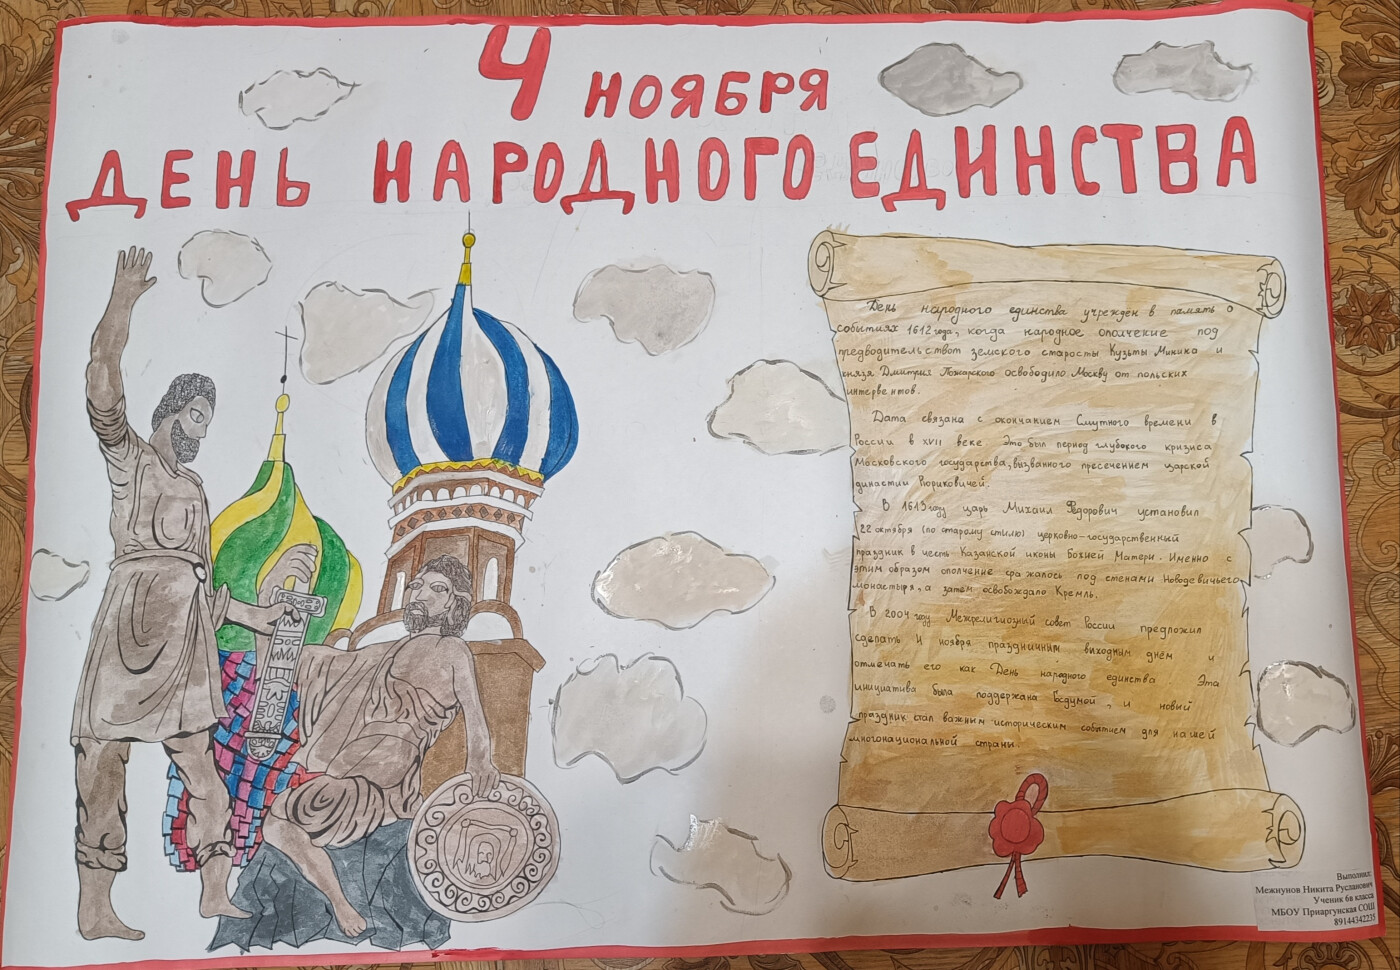 4 НОЯБРЯ
ДЕНЬ НАРОДНОГО ЕДИНСТВА
День народного единства учреждён в память о
событиях 1612 года, когда народное ополчение под
предводительством земского старосты Кузьты Минина и
князя Дмитрия Пожарского освободило Москву от польских
интервентов.
Дата связана с окончанием Смутного времени в
России в XVII веке Это был период глубокого кризиса
Московского государства, вызванного пресечением царской
династии Рюриковичей.
В 1613 году царь Михаил Фёдорович установил
22 октября (по старому стилю) церковно-государственный
праздник в честь Казанской иконы Божией Матери. Именно с
этим образом ополчение сражалось под стенами Новодевичьего
монастыря, а затем освобождало Кремль.
В 2004 году Межрелигиозный совет России предложил
сделать 4 ноября праздничным выходным днём и
отмечать его как День народного единства. Эта
инициатива была поддержана Госдумой, и новый
праздник стал важным историческим событием для нашей
многонациональной страны.
Выполнил:
Межиунов Никита Русланович
Ученик 6в класса
МБОУ Приаргунская СОШ
89144342235